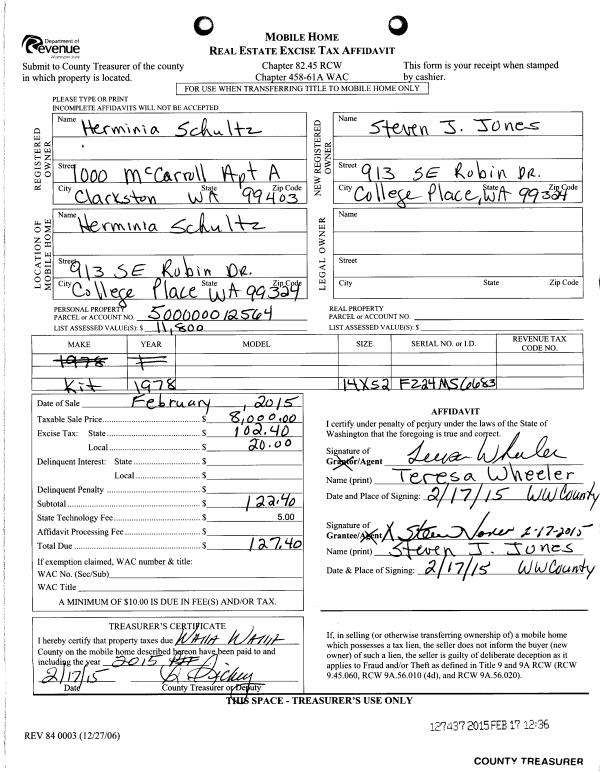 Department of
Revenue
Washington State
MOBILE HOME
REAL ESTATE EXCISE TAX AFFIDAVIT
Submit to County Treasurer of the county
in which property is located.
Chapter 82.45 RCW
Chapter 458-61A WAC
This form is your receipt when stamped
by cashier.
FOR USE WHEN TRANSFERRING TITLE TO MOBILE HOME ONLY
PLEASE TYPE OR PRINT
INCOMPLETE AFFIDAVITS WILL NOT BE ACCEPTED
REGISTERED OWNER
Name Herminia Schultz
Street 1000 McCarroll Apt A
City State Zip Code
Clarkston WA 99403
NEW REGISTERED OWNER
Name Steven J. Jones
Street 913 SE Robin DR.
City State Zip Code
College Place, WA 99324
LOCATION OF MOBILE HOME
Name Herminia Schultz
Street 913 SE Robin DR.
City State Zip Code
College Place WA 99324
LEGAL OWNER
Name
Street
City State Zip Code
PERSONAL PROPERTY
PARCEL or ACCOUNT NO. 500000012564
LIST ASSESSED VALUE(S): $ 11,800
REAL PROPERTY
PARCEL or ACCOUNT NO.
LIST ASSESSED VALUE(S): $
MAKE YEAR MODEL SIZE SERIAL NO. or I.D. REVENUE TAX CODE NO.
1978
Kit 1978 14X52 FZ24MS6683
Date of Sale February, 2015
Taxable Sale Price $ 8,000.00
Excise Tax: State $ 102.40
Local $ 20.00
Delinquent Interest: State $
Local $
Delinquent Penalty $
Subtotal $ 122.40
State Technology Fee $ 5.00
Affidavit Processing Fee $
Total Due $ 127.40
If exemption claimed, WAC number & title:
WAC No. (Sec/Sub)
WAC Title
A MINIMUM OF $10.00 IS DUE IN FEE(S) AND/OR TAX.
AFFIDAVIT
I certify under penalty of perjury under the laws of the State of
Washington that the foregoing is true and correct.
Signature of
Grantor/Agent Teresa Wheeler
Name (print) Teresa Wheeler
Date and Place of Signing: 2/17/15 WW County
Signature of
Grantee/Agent X Steven Jones 2-17-2015
Name (print) Steven J. Jones
Date & Place of Signing: 2/17/15 WW County
TREASURER'S CERTIFICATE
I hereby certify that property taxes due Walla Walla
County on the mobile home described hereon have been paid to and
including the year 2015
2/17/15
Date County Treasurer or Deputy
If, in selling (or otherwise transferring ownership of) a mobile home
which possesses a tax lien, the seller does not inform the buyer (new
owner) of such a lien, the seller is guilty of deliberate deception as it
applies to Fraud and/or Theft as defined in Title 9 and 9A RCW (RCW
9.45.060, RCW 9A.56.010 (4d), and RCW 9A.56.020).
THIS SPACE - TREASURER'S USE ONLY
127437 2015 FEB 17 12:36
REV 84 0003 (12/27/06)
COUNTY TREASURER